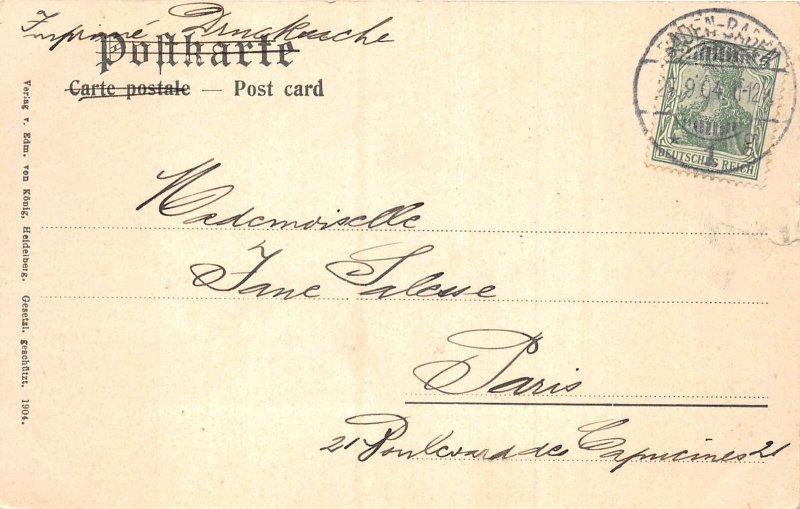 Imprimé Drucksache
Postkarte
Carte postale — Post card
BADEN-BADEN
9.04. 11-12
1
DEUTSCHES REICH
Mademoiselle
Jane Salesse
Paris
21 Boulevard des Capucines 21
Verlag v. Edm. von König, Heidelberg. Gesetzl. geschützt. 1904.